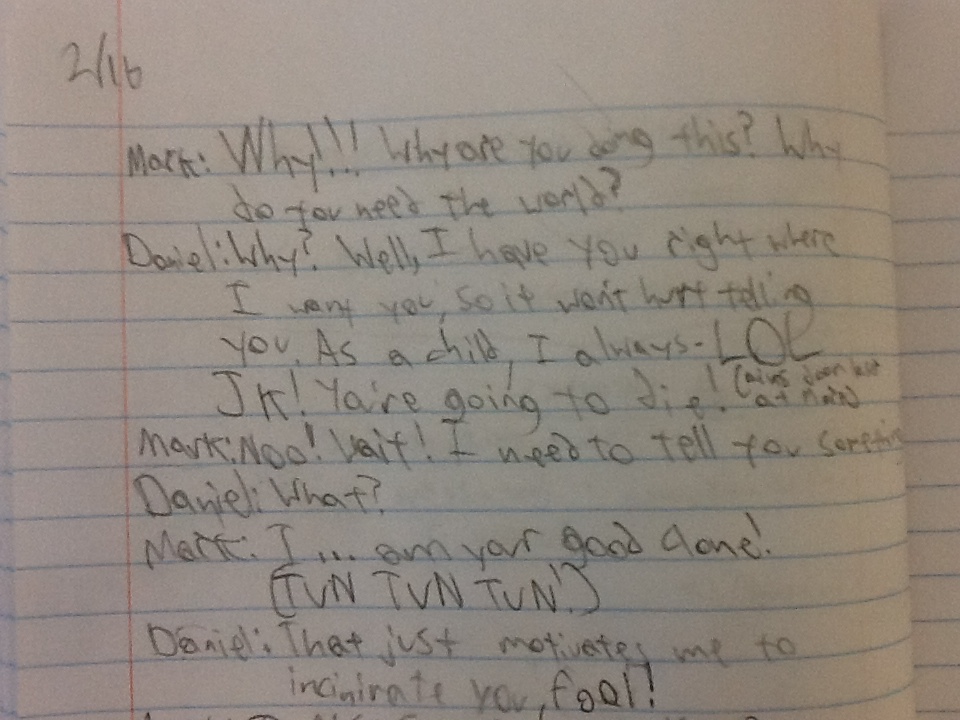 2/16
Mark: Why!!! Why are you doing this? Why
do you need the world?
Daniel: Why? Well, I have you right where
I want you, so it won't hurt telling
you. As a child, I always- LOL
JK! You're going to die! (aims down
at
Mark: Noo! Wait! I need to tell you
Daniel: What?
Mark: I ... am your good clone!
(TUN TUN TUN!)
Daniel: That just motivates me to
incinirate you, fool!